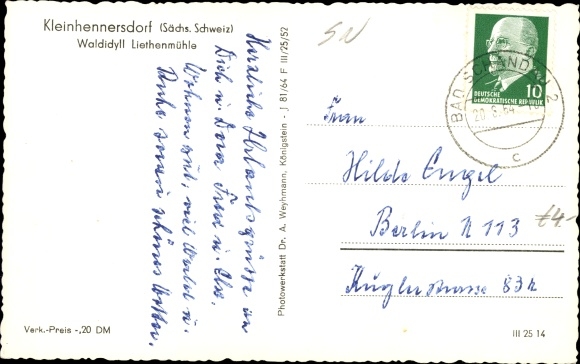 Kleinhennersdorf (Sächs. Schweiz)
Waldidyll Liethenmühle
Herzliche Urlaubsgrüße an
Dich u. Deine
Wohnen gut, viel Wald u.
Ruhe schönes Wetter.
Verk.-Preis -,20 DM
Photowerkstatt Dr. A. Weyhmann, Königstein - J 81/64 F III/25/52
DEUTSCHE
DEMOKRATISCHE REPUBLIK
10
BAD SCHANDAU 2
c
Frau
Hilde Engel
Berlin N 113
Kuglerstrasse 83
III 25 14